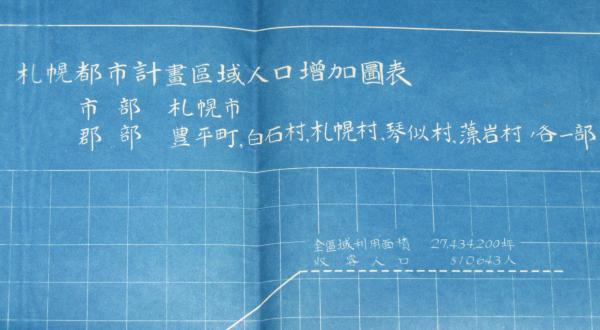 札幌都市計畫區域人口增加圖表
市部 札幌市
郡部 豊平町、白石村、札幌村、琴似村、藻岩村ノ各一部
全區域利用面積 27,434,200坪
収容人口 510,643人